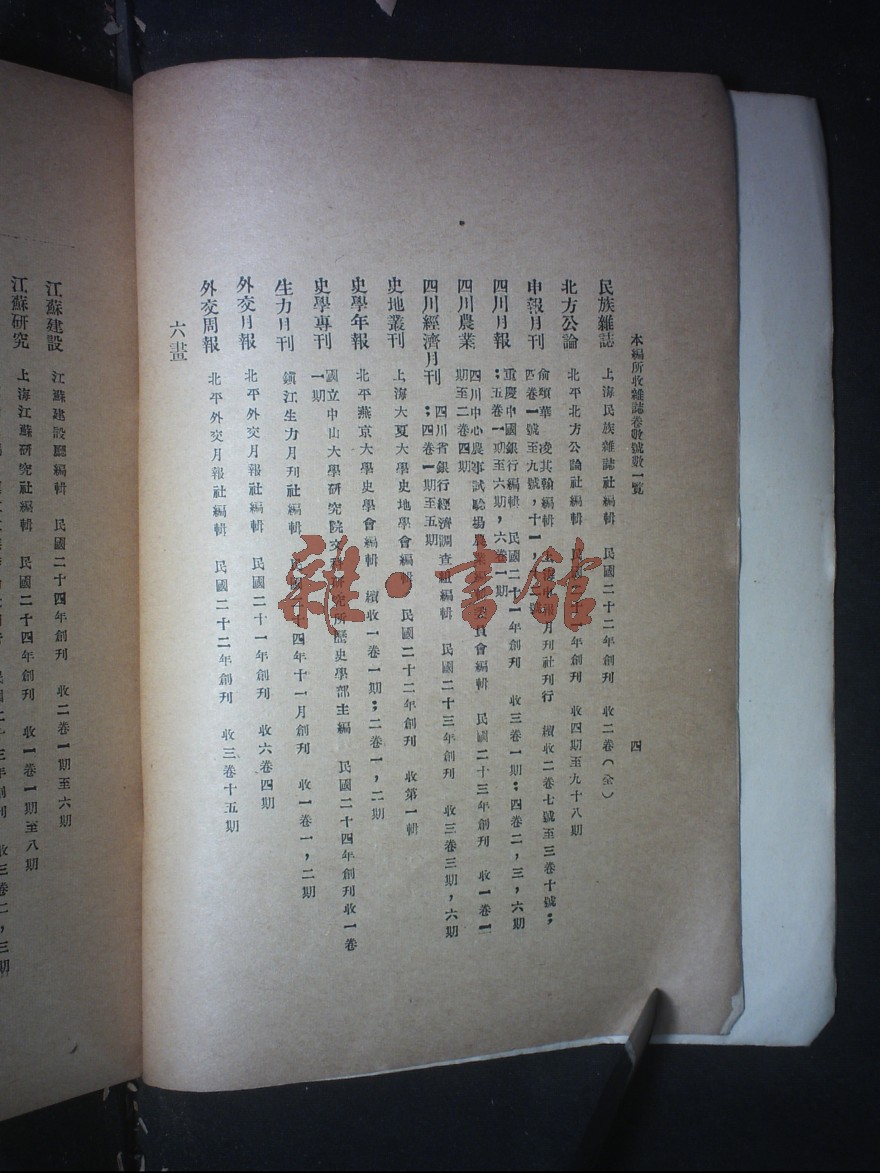 本編所收雜誌卷數號數一覽
四
民族雜誌　上海民族雜誌社編輯　民國二十二年創刊　收二卷（全）
北方公論　北平北方公論社編輯　民國二十　年創刊　收四期至九十八期
申報月刊　俞頌華　凌其翰編輯　上海申報月刊社刊行　續收二卷七號至三卷十號；
四卷一號至九號，十一，十二號
四川月報　重慶中國銀行編輯　民國二十一年創刊　收三卷一期；四卷二，三，六期
；五卷一期至六期，六卷一期
四川農業　四川中心農事試驗場農業　委員會編輯　民國二十三年創刊　收一卷一
期至二卷四期
四川經濟月刊　四川省銀行經濟調查組編輯　民國二十三年創刊　收三卷三期，六期
；四卷一期至五期
史地叢刊　上海大夏大學史地學會編輯　民國二十二年創刊　收第一輯
史學年報　北平燕京大學史學會編輯　續收一卷一期；二卷一，二期
史學專刊　國立中山大學研究院文科研究所歷史學部主編　民國二十四年創刊收一卷
一期
生力月刊　鎮江生力月刊社編輯　民國二十四年十一月創刊　收一卷一，二期
外交月報　北平外交月報社編輯　民國二十一年創刊　收六卷四期
外交周報　北平外交月報社編輯　民國二十二年創刊　收三卷十五期
六畫
江蘇建設　江蘇建設廳編輯　民國二十四年創刊　收二卷一期至六期
江蘇研究　上海江蘇研究社編輯　民國二十四年創刊　收一卷一期至八期
收三卷二，三期
雜·書館